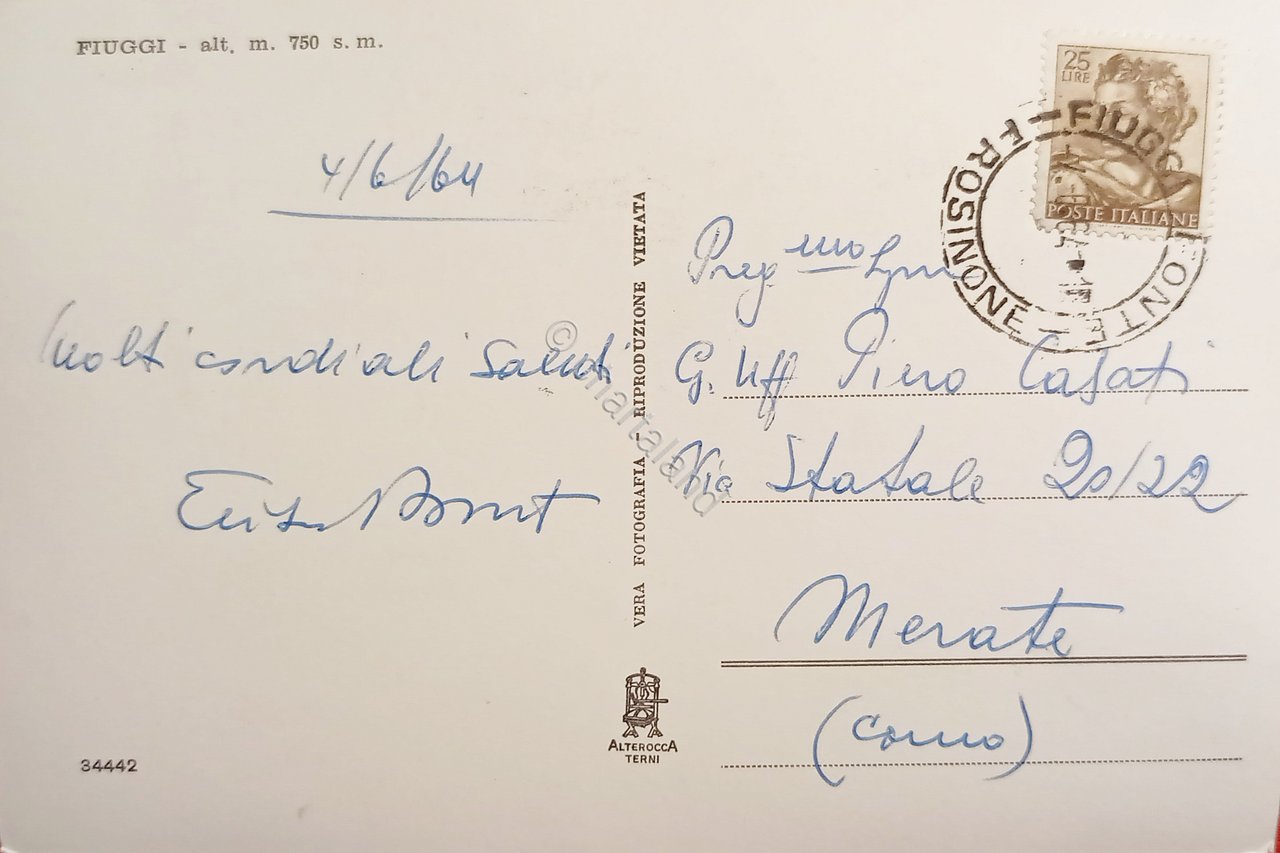 FIUGGI - alt. m. 750 s. m.
4/6/64
Molti cordiali saluti
34442
VERA FOTOGRAFIA - RIPRODUZIONE VIETATA
ALTEROCCA
TERNI
25
LIRE
POSTE ITALIANE
FIUGGI FONTE
FROSINONE
Preg mo
G. Uff Piero Casati
Via Statale 20/22
Merate
(Como)